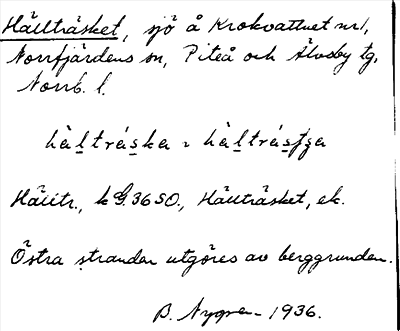 Hällträsket, sjö å Krokvattnet nr 1,
Norrfjärdens sn, Piteå och Älvsby tg,
Norrb. l.
Hälltr., k G. 36 SO., Hällträsket, ek.
Östra stranden utgöres av berggrunden.
B. Nygren 1936.